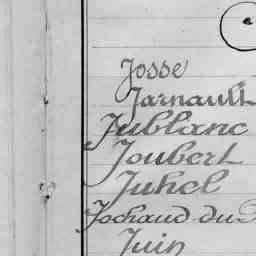 Josse
Jarnault
Jublanc
Joubert
Juhel
Jochaud du
Juin